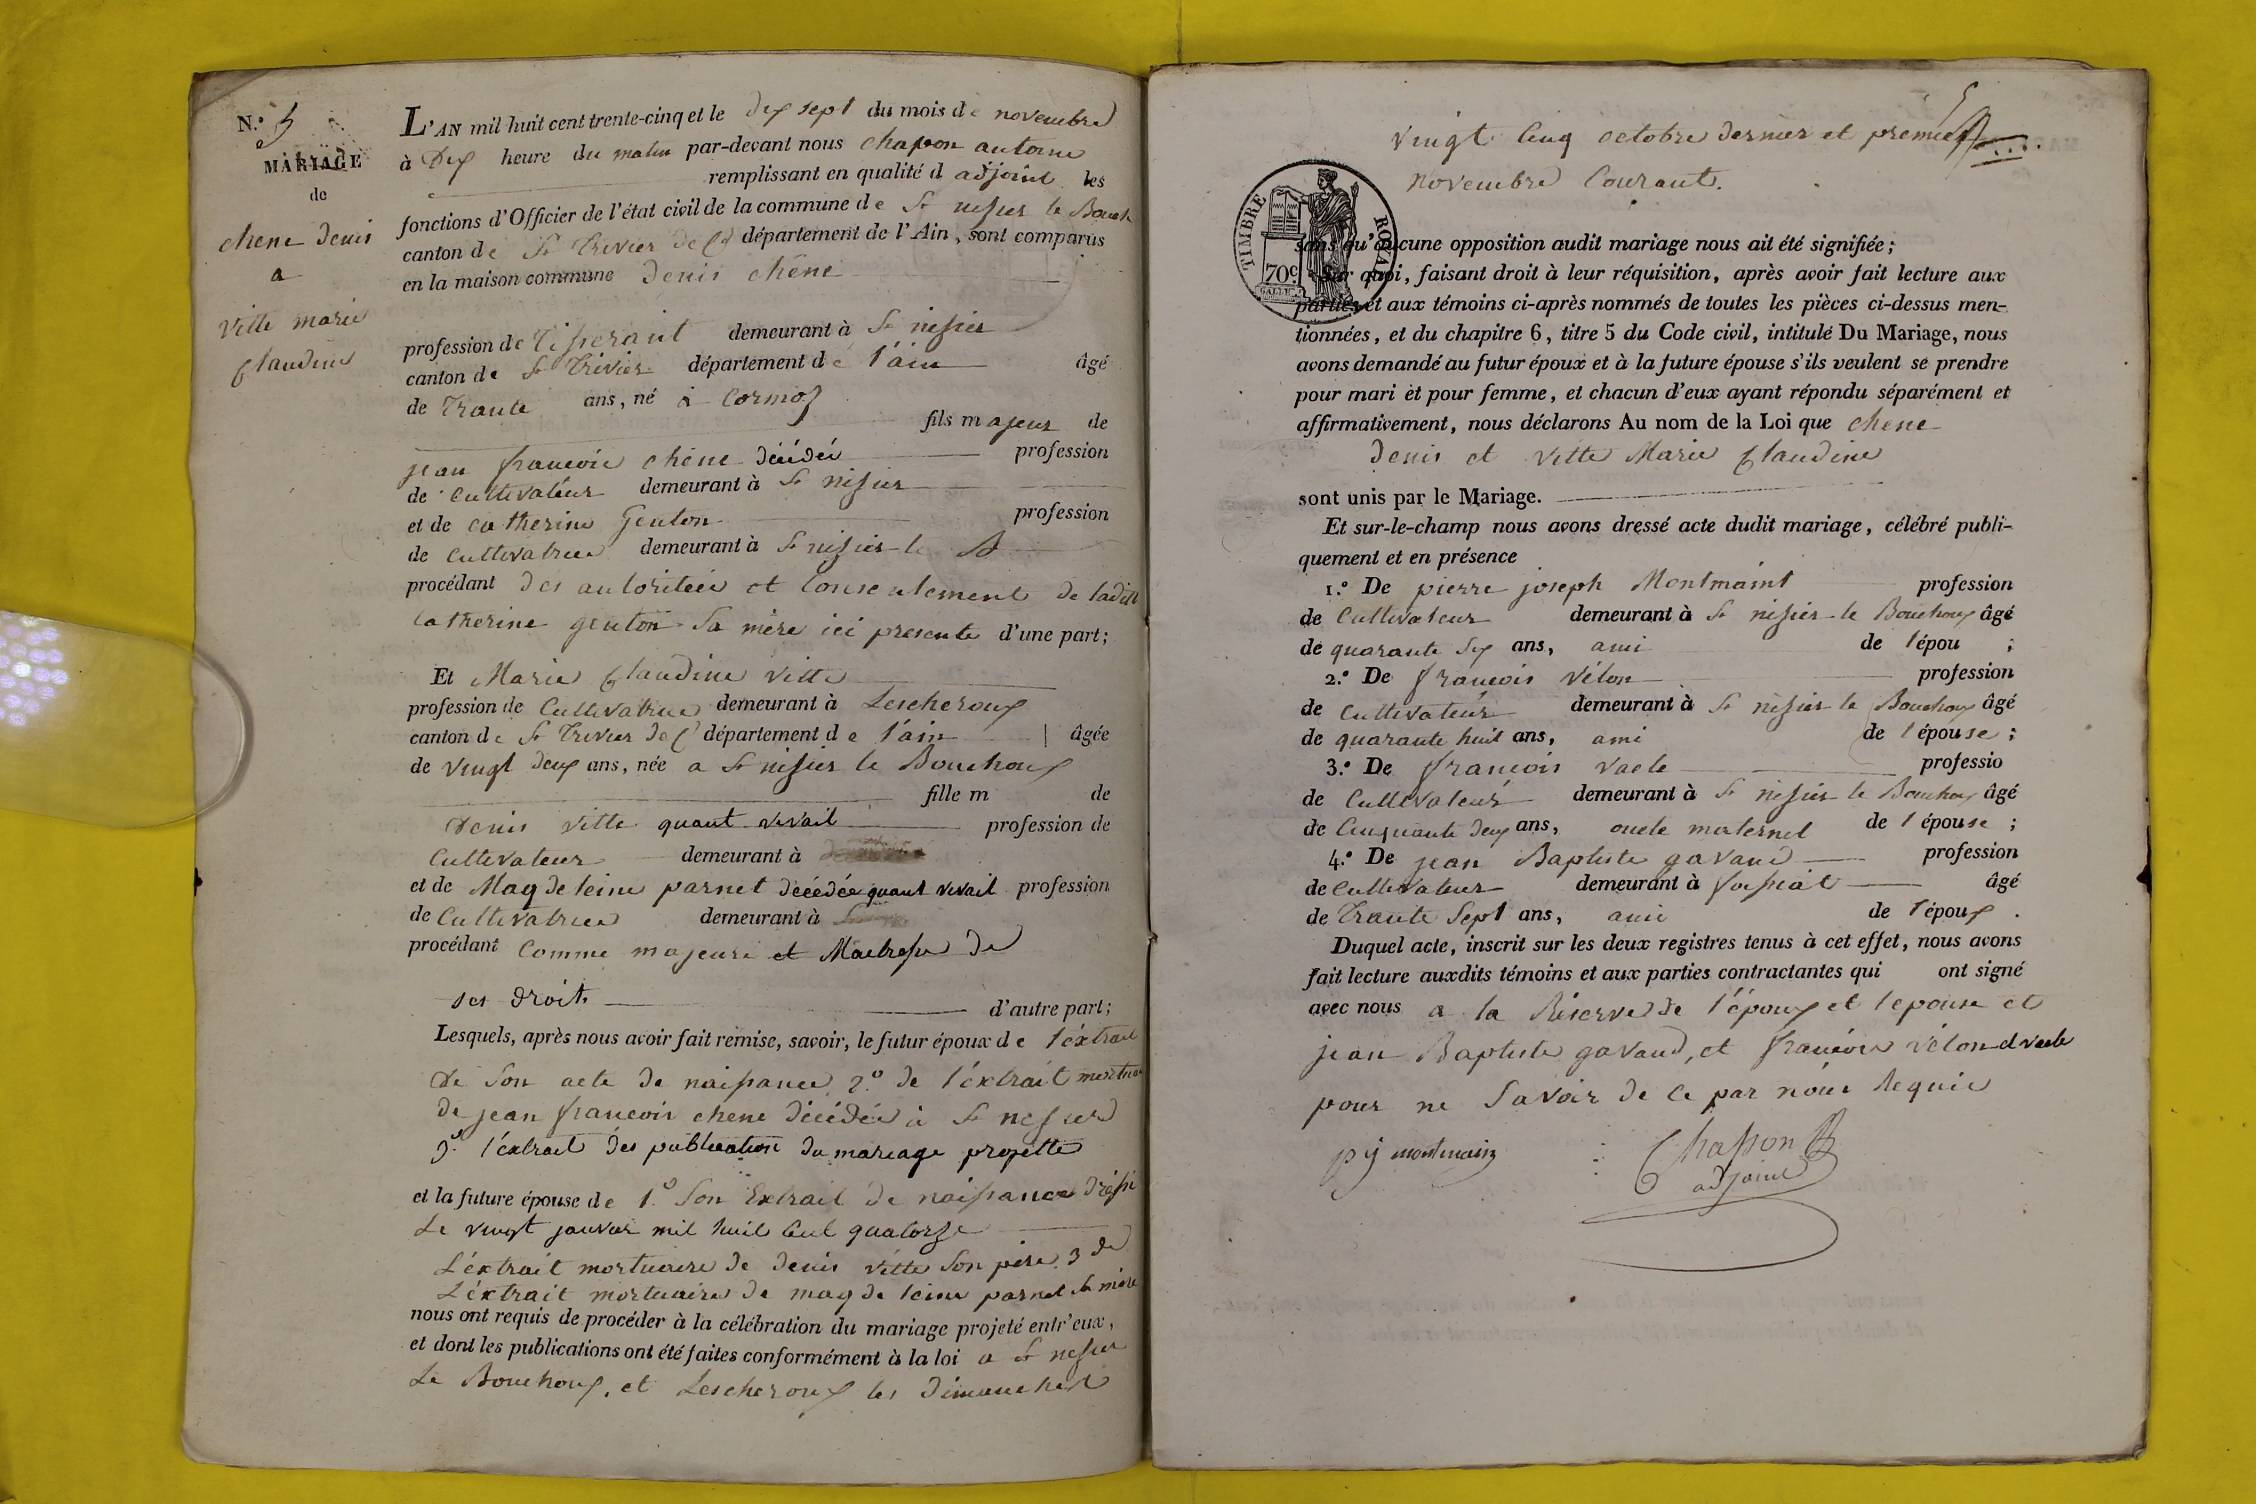 N.º 5
MARIAGE
de
chene denis
a
vitte marie
Claudine
L'AN mil huit cent trente-cinq et le dix sept du mois de novembre
à Dix heure du matin par-devant nous chapon antoine
remplissant en qualité d adjoint les
fonctions d'Officier de l'état civil de la commune de St nisier le Bouch
canton de St Trivier de C département de l'Ain, sont comparus
en la maison commune denis chêne
profession de Tisserant demeurant à St nisier
canton de St Trivier département de l'ain âgé
de Trante ans, né à Cormoz
fils majeur de
jean francois chêne décédé profession
de Cultivateur demeurant à St nisier
et de catherine Genton profession
de cultivatrice demeurant à St nisier le B
procédant des autoritéé et consentement de ladit
catherine genton sa mère ici presente d'une part;
Et Marie Claudine vitte
profession de Cultivatrice demeurant à Lescheroux
canton de St Trivier de C département de l'ain âgée
de vingt deux ans, née a St nisier le Bouchoux
fille m de
denis vitte quant vivait profession de
Cultivateur demeurant à
et de Magdeleine parnet décédée quant vivait profession
de Cultivatrice demeurant à
procédant Comme majeure et Maitresse de
ses droit d'autre part;
Lesquels, après nous avoir fait remise, savoir, le futur époux de l'éxtrait
de son acte de naissance 2.º de l'éxtrait mortua
de jean francois chene décédée à St nesier
3.º l'éxtrait des publication du mariage projetté
et la future épouse de 1.º son Extrait de naissance
Le vingt janvier mil huit cent quatorze
L'éxtrait mortuaire de denis vitte son père 3 de
L'éxtrait mortuaire de magdeleine parnet sa mère
nous ont requis de procéder à la célébration du mariage projeté entr'eux,
et dont les publications ont été faites conformément à la loi a St nesier
Le Bouchoux, et Lescheroux les dimanches
5
vingt cinq octobre dernier et premier
novembre courant.
TIMBRE ROYAL
70c
sans qu'aucune opposition audit mariage nous ait été signifiée;
Sur quoi, faisant droit à leur réquisition, après avoir fait lecture aux
parties et aux témoins ci-après nommés de toutes les pièces ci-dessus men-
tionnées, et du chapitre 6, titre 5 du Code civil, intitulé Du Mariage, nous
avons demandé au futur époux et à la future épouse s'ils veulent se prendre
pour mari et pour femme, et chacun d'eux ayant répondu séparément et
affirmativement, nous déclarons Au nom de la Loi que chene
denis et vitte Marie Claudine
sont unis par le Mariage.
Et sur-le-champ nous avons dressé acte dudit mariage, célébré publi-
quement et en présence
1.º De pierre joseph Montmaint profession
de Cultivateur demeurant à St nisier le Bouchoux âgé
de quarante six ans, ami de l'épou ;
2.º De francois vélon profession
de cultivateur demeurant à St nisier le Bouchoux âgé
de quarante huit ans, ami de l'épouse ;
3.º De francois vacle professio
de Cultivateur demeurant à St nisier le Bouchoux âgé
de Cinquante deux ans, oncle maternel de l'épouse ;
4.º De jean Baptiste gavand profession
de Cultivateur demeurant à foissiat âgé
de Trante Sept ans, ami de l'époux .
Duquel acte, inscrit sur les deux registres tenus à cet effet, nous avons
fait lecture auxdits témoins et aux parties contractantes qui ont signé
avec nous a la Réserve de l'époux et l'epouse et
jean Baptiste gavand, et francois vélon et vacle
pour ne savoir de ce par nous Requie
pj montmain Chapon
adjoint